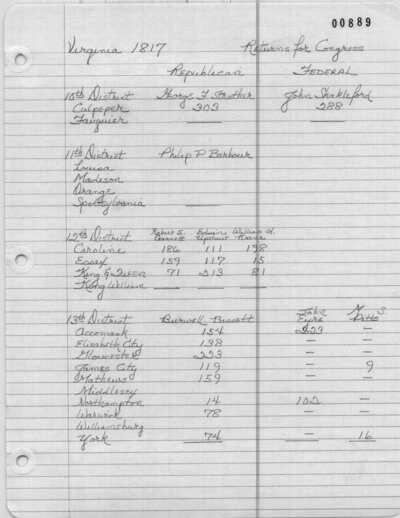 00889
Virginia 1817 Returns for Congress
Republican FEDERAL
10th District George F. Strother John Shakleford
Culpeper 303 288
Fauquier
11th District Philip P Barbour
Louisa
Madison
Orange
Spotsylvania
12th District Robert S. Garnett Edwin Upshaw William H. Roane
Caroline 186 111 198
Essex 159 117 15
King & Queen 71 213 81
King William
13th District Burwell Bassett John Eyre S.
Accomack 154 223 —
Elizabeth City 138 — —
Gloucester 223 — —
James City 119 — 9
Mathews 159 — —
Middlesey
Northampton 14 102 —
Warwick 78 — —
Williamsburg
York 74 — 16